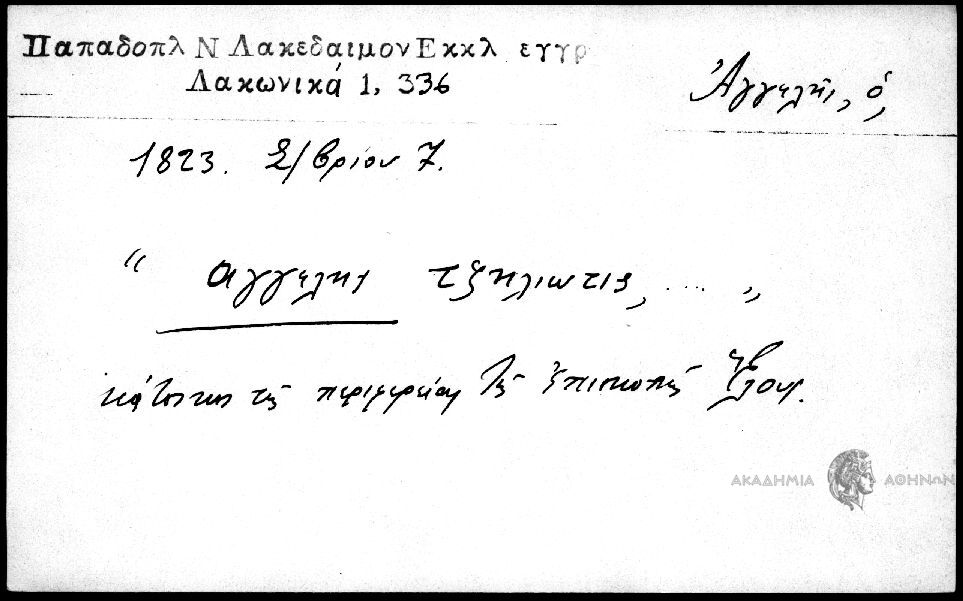 Παπαδοπλ Ν Λακεδαιμον Εκκλ εγγρ
Λακωνικά 1, 336
Ἀγγελῆς, ὁ,
1823. Σ/βρίου 7.
“ αγγελης τζηλιωτις, .... „
κάτοικος τῆς περιφερείας τῆς Ἐπισκοπῆς Ἕλους.
ΑΚΑΔΗΜΙΑ ΑΘΗΝΩΝ